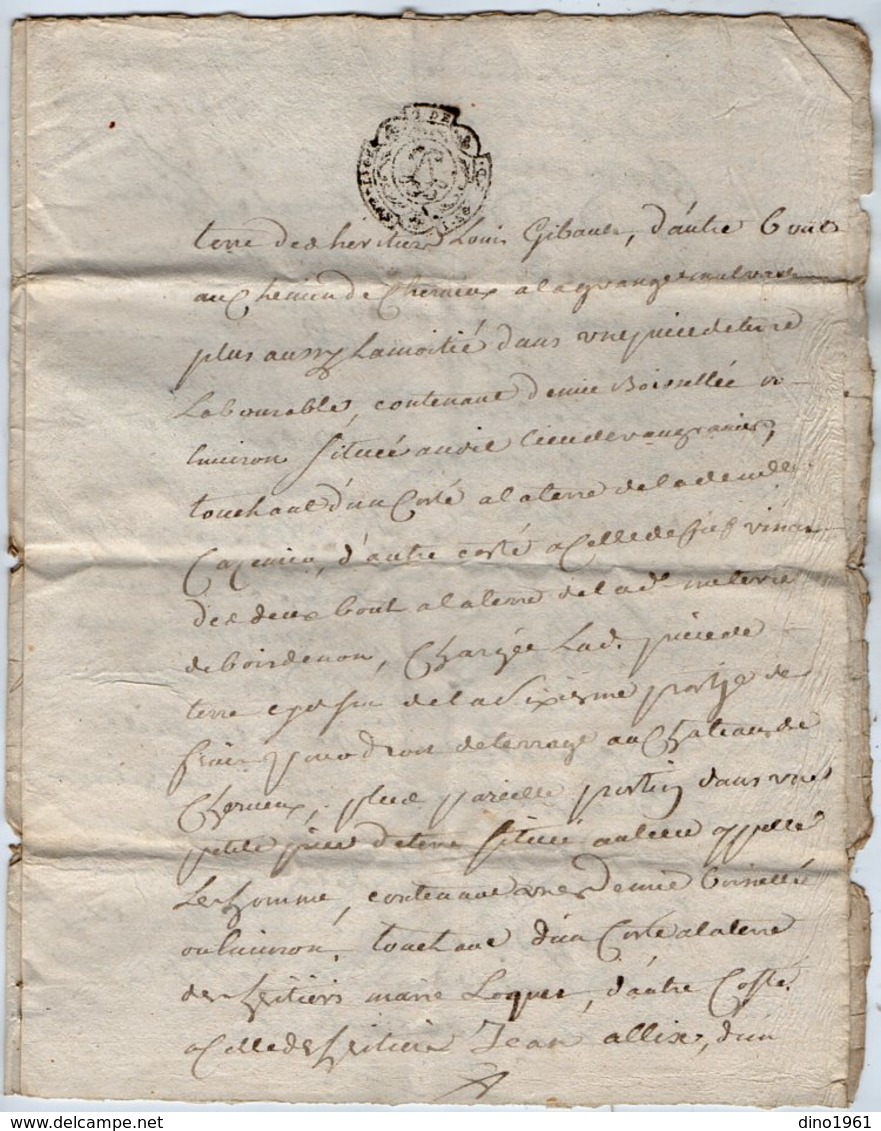 terre des heritiers Louis Gibault, d'autre bout
au Chemin de Cherveux a la grange
plus aussy La moitié dans vne piece de terre
Labourable, contenant demie Boisellée ou
Enuiron Située audit lieu de
touchant d'un Costé a la terre de la demelle
d'autre costé a Celle de
des deux bout a la terre de lad. meterie
de boisdenon, Chargée Lad. piece de
terre de la Sixiesme partye de
fruits pour droit de terrage au Chateau de
Cherveux, plus pareille portion dans vne
petite piece de terre Située au lieu appellé
Lershomme, contenant vne demie boisellée
ou Enuiron, touchant d'un Costé a la terre
des heritiers marie Loques, d'autre Costé
a Celle des heritiers Jean allix, d'un
dino1961